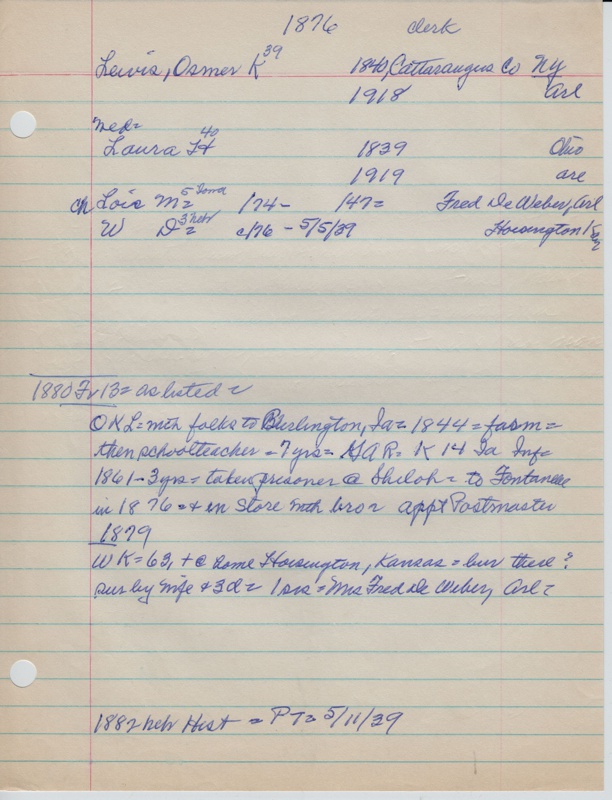 1876 clerk
Lewis, Osmer K 39 1840, Cattaraugus Co NY
1918 Arl
med=
Laura H 40 1839 Ohio
1919 Arl
ch Lois M= 5 Iowa 174- 147= Fred De Weber, Arl
W D= 3 Nebr c/76 - 5/5/39 Hoisington Kan
1880 Fr 13 = as listed =
OKL = with folks to Burlington, Ia = 1844 = farm =
then schoolteacher = 7 yrs = GAR = K 14 Ia Inf =
1861 - 3 yrs = taken prisoner @ Shiloh = to Fontanelle
in 1876 = + in store with bro = appt Postmaster
1879
WK = 63, + @ home Hoisington, Kansas = bur there?
sur by wife + 3d = 1 sis = Mrs Fred De Weber, Arl =
1882 Nebr Hist = PT = 5/11/39